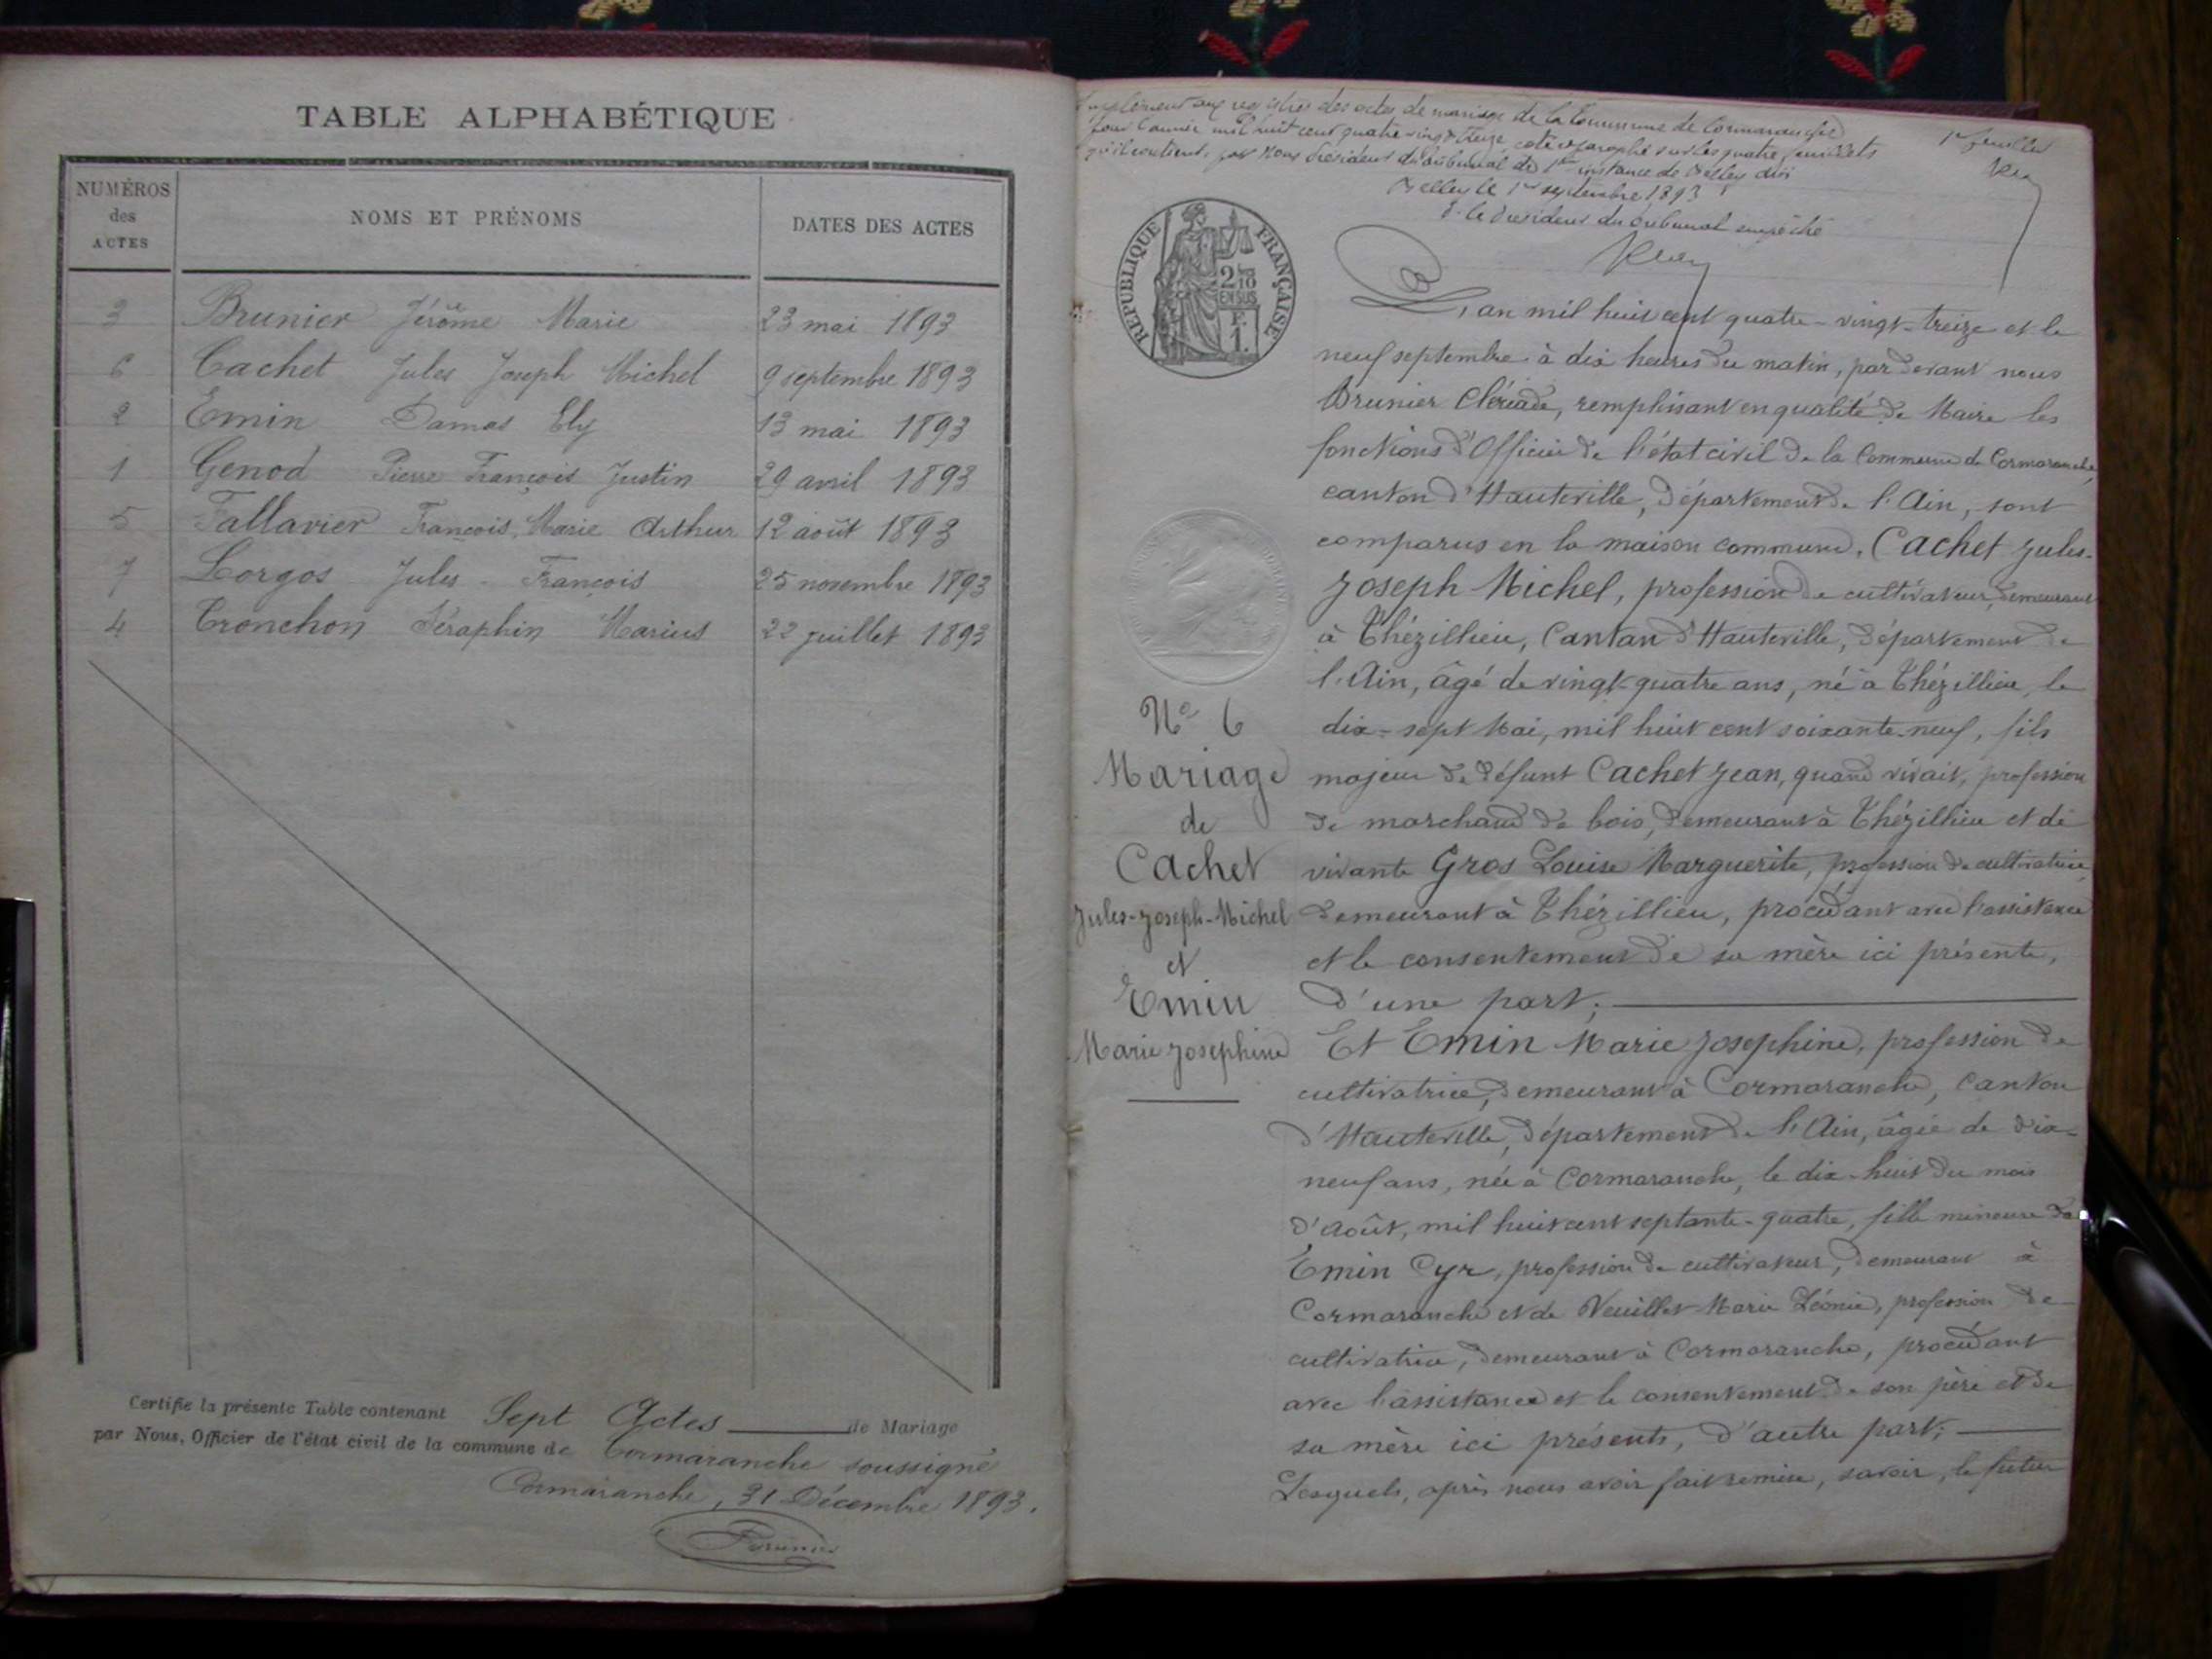 TABLE ALPHABÉTIQUE
NUMÉROS des ACTES
NOMS ET PRÉNOMS
DATES DES ACTES
3 Brunier Jérôme Marie 23 mai 1893
6 Cachet Jules Joseph Michel 9 septembre 1893
2 Emin Damas Ely 13 mai 1893
1 Genod Pierre François Justin 29 avril 1893
5 Tallavier François, Marie Arthur 12 août 1893
7 Lorgos Jules François 25 novembre 1893
4 Tronchon Séraphin Marius 22 juillet 1893
Certifie la présente Table contenant Sept Actes de Mariage
par Nous, Officier de l'état civil de la commune de Cormaranche soussigné
Cormaranche, 31 Décembre 1893.
Brunier
Supplément aux registres des actes de mariage de la Commune de Cormaranche
pour l'année mil huit cent quatre vingt treize coté et paraphé sur les quatre feuillets
qu'il contient, par Nous Président du tribunal de 1ère instance de Belley
Belley le 1er septembre 1893
P. le Président du tribunal empêché
1er feuillet
RÉPUBLIQUE FRANÇAISE
2/10 EN SUS
F. 1.
L'an mil huit cent quatre-vingt-treize et le
neuf septembre à dix heures du matin, par devant nous
Brunier Clériade, remplissant en qualité de Maire les
fonctions d'Officier de l'état civil de la Commune de Cormaranche,
canton d'Hauteville, département de l'Ain, sont
comparus en la maison commune, Cachet Jules-
Joseph Michel, profession de cultivateur, demeurant
à Thézillieu, Canton d'Hauteville, département de
l'Ain, âgé de vingt-quatre ans, né à Thézillieu, le
dix-sept Mai, mil huit cent soixante-neuf, fils
majeur de défunt Cachet Jean, quand vivait, profession
de marchand de bois, demeurant à Thézillieu et de
vivante Gros Louise Marguerite, profession de cultivatrice,
demeurant à Thézillieu, procédant avec l'assistance
et le consentement de sa mère ici présente,
d'une part;
Et Emin Marie Josephine, profession de
cultivatrice, demeurant à Cormaranche, canton
d'Hauteville, département de l'Ain, âgée de dix-
neuf ans, née à Cormaranche, le dix-huit du mois
d'Août, mil huit cent septante-quatre, fille mineure de
Emin Cyr, profession de cultivateur, demeurant à
Cormaranche et de Neuillet Marie Léonie, profession de
cultivatrice, demeurant à Cormaranche, procédant
avec l'assistance et le consentement de son père et de
sa mère ici présents, d'autre part;
Lesquels, après nous avoir fait remise, savoir, le futur
No 6
Mariage
de
Cachet
Jules-Joseph-Michel
et
Emin
Marie Josephine